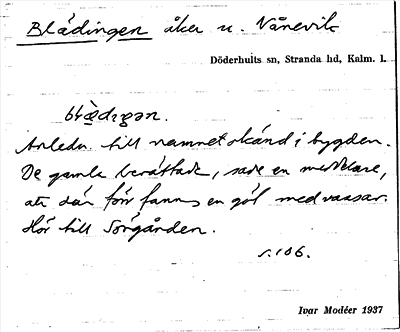 Blädingen åker u. Vånevik
Döderhults sn, Stranda hd, Kalm. l.
Anledn. till namnet okänd i bygden.
De gamla berättade, sade en meddelare,
att där förr fanns en göl med vassar.
Hör till Sörgården.
s. 106.
Ivar Modéer 1937